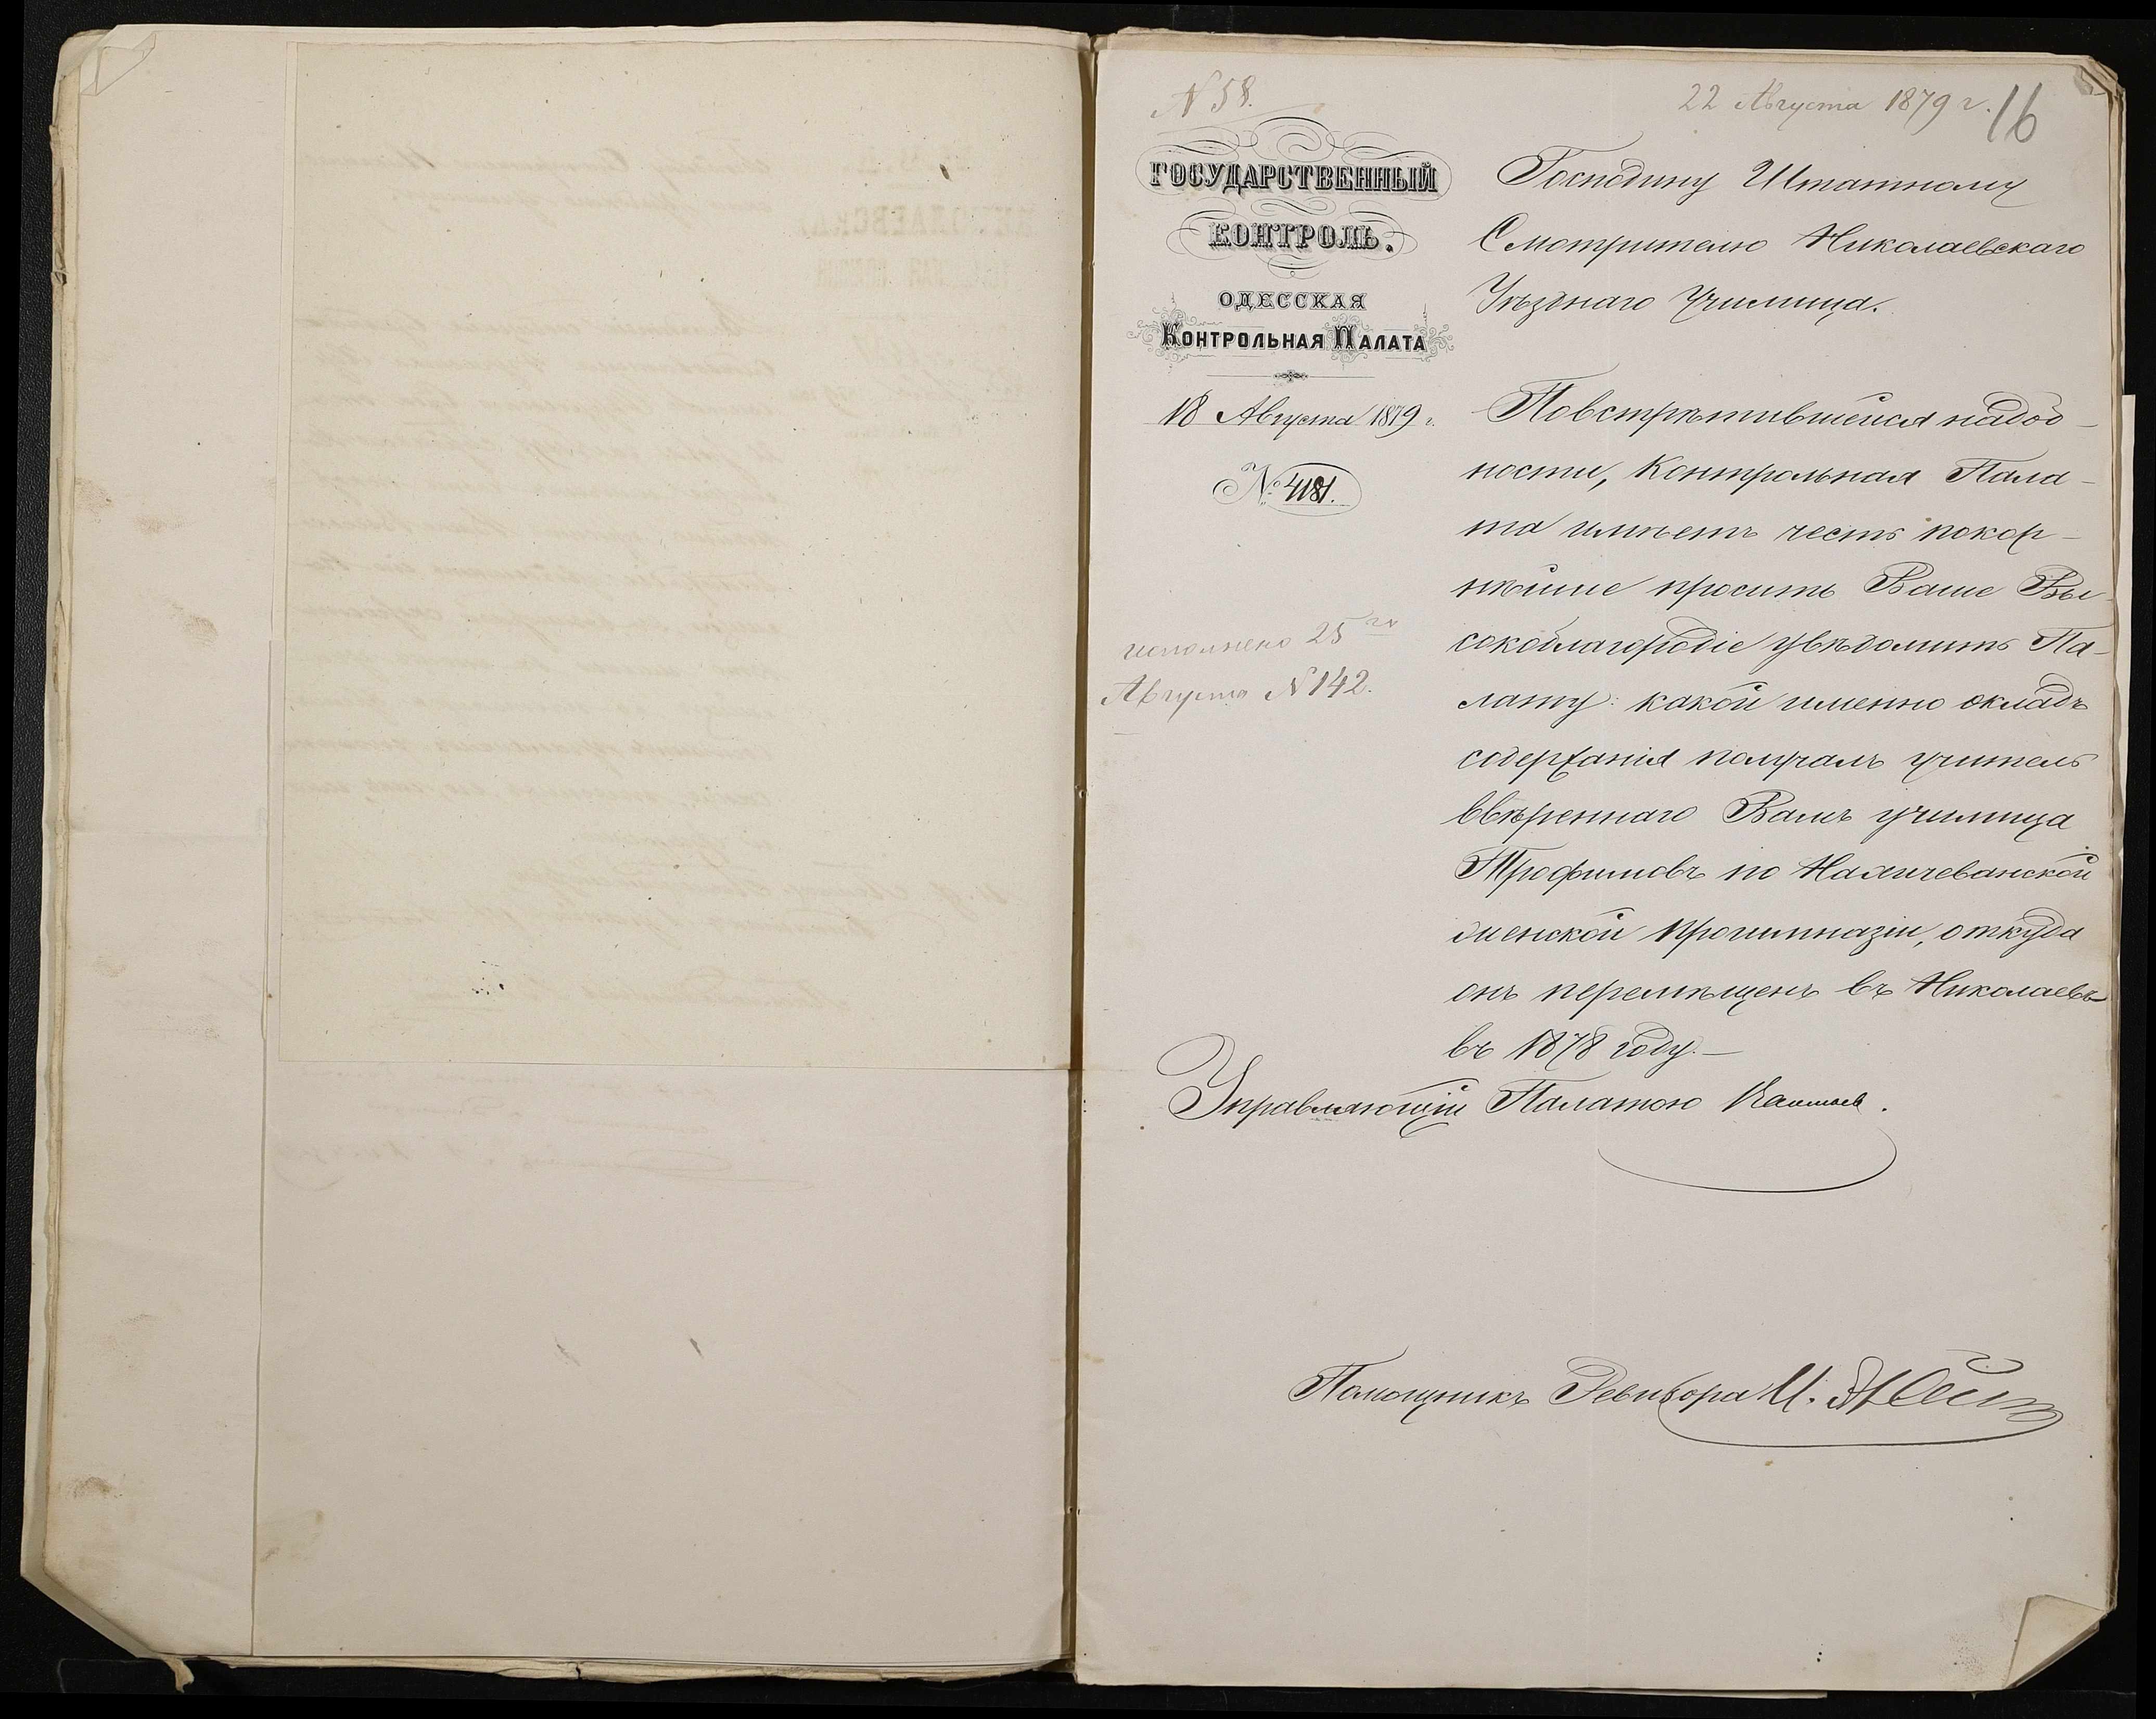 N 58.
22 Августа 1879 г.
16
ГОСУДАРСТВЕННЫЙ
КОНТРОЛЬ.
ОДЕССКАЯ
КОНТРОЛЬНАЯ ПАЛАТА
18 Августа 1879 г.
№ 4181.
исполнено 25 го
Августа N 142.
Господину Штатному
Смотрителю Николаевскаго
Уѣзднаго Училища.
По встрѣтившейся надоб-
ности, Контрольная Пала-
та имѣетъ честь покор-
нѣйше просить Ваше Вы-
сокоблагородіе увѣдомить Па-
лату: какой именно окладъ
содержанія получалъ учитель
ввѣреннаго Вамъ училища
Трофимовъ по Нахичеванской
женской прогимназіи, откуда
онъ перемѣщенъ въ Николаевъ
въ 1878 году.—
Управляющій Палатою
Помощникъ Ревизора И.